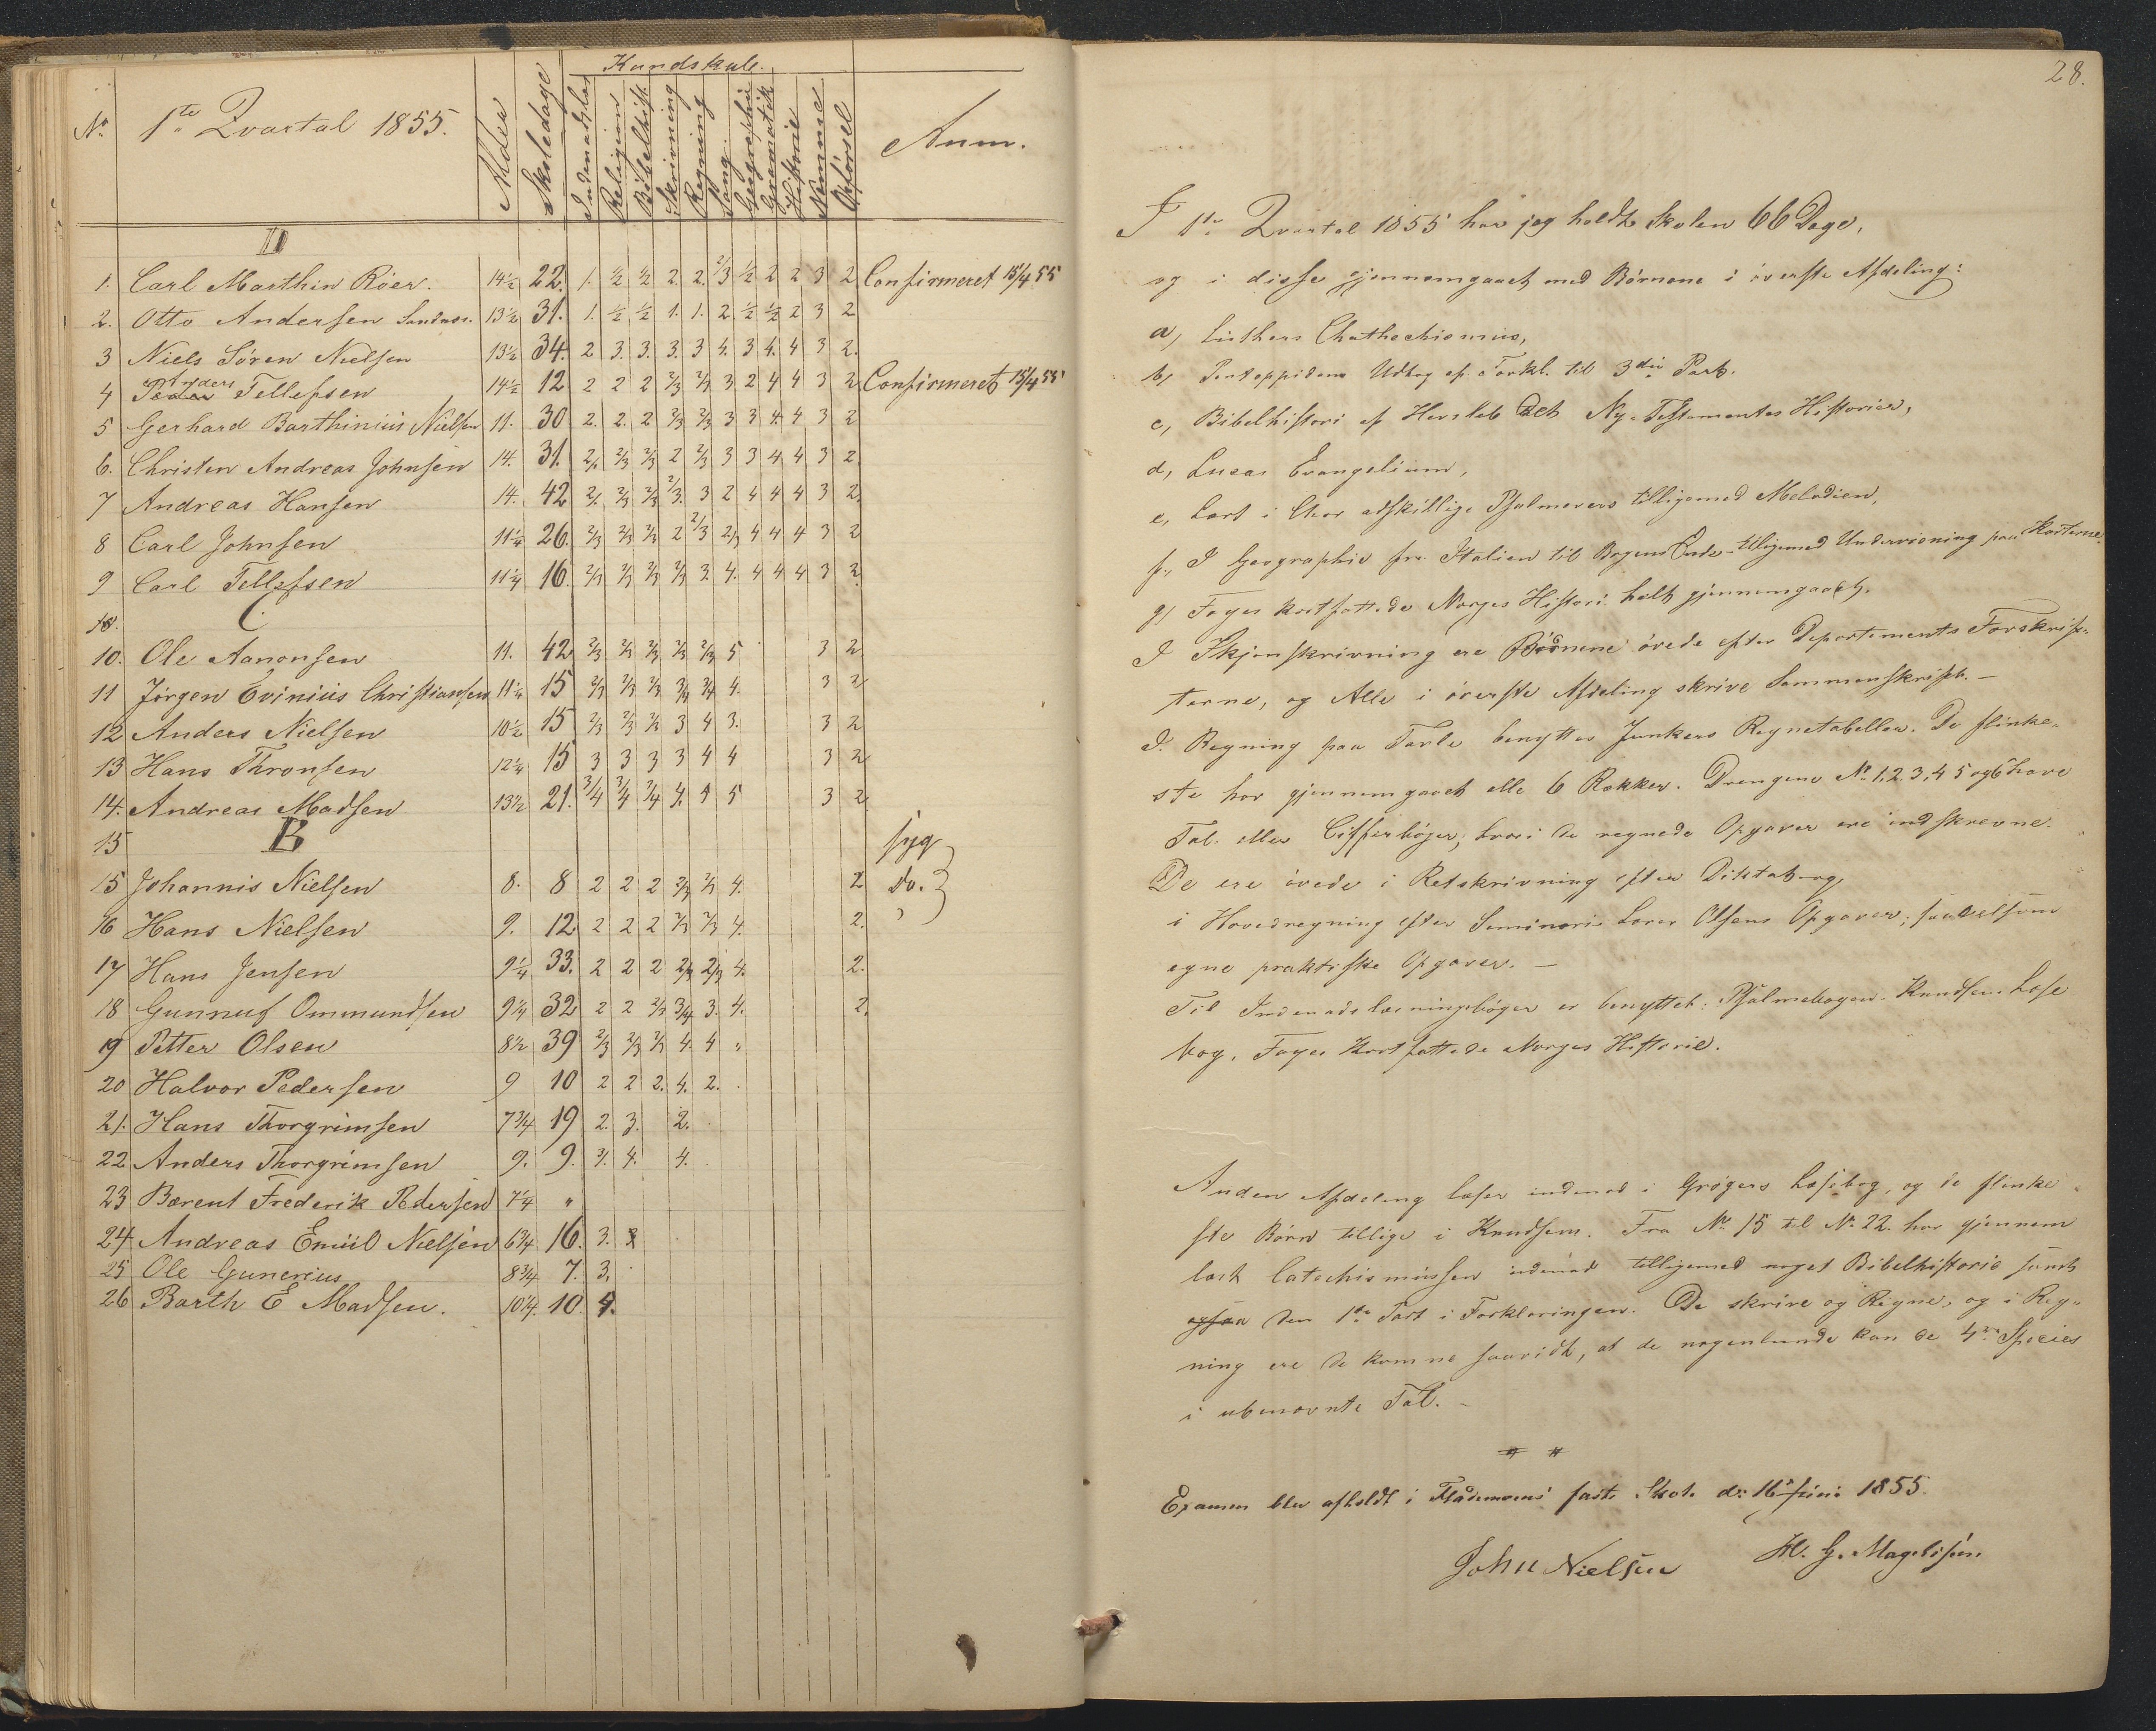 No. 1te Qvartal 1855. Alder Skoledage Kundskab. Indenadslæs Religion Bibelhist. Skrivning Regning Sang. Geographie Gramatik Historie Nemme Opførsel Anm.
D
1. Carl Marthin Röer. 14½ 22. 1. ½ ½ 2 2. 2/3 ½ 2 2 3 2 Confirmeret 15/4 55
2. Otto Andersen 13½ 31. 1. ½ ½ 1. 1. 2 ½ ½ 2 3 2
3 Niels Sören Nielsen 13½ 34. 2 3. 3. 3. 3 4. 3 4. 4 3 2.
4 Anders Tellefsen 14½ 12 2 2 2 2/3 2/3 3 2 4 4 3 2 Confirmeret 15/4 55
5 Gerhard Barthinius Nielsen 11. 30 2. 2. 2 2/3 2/3 3 3 4. 4 3 2
6. Christen Andreas Johnsen 14. 31. 2/1 2/3 2/3 2 2/3 3 3 4 4 3 2.
7 Andreas Hansen 14. 42 2/1 2/3 2/3 2/3. 3 2 4 4 4 3 2.
8 Carl Johnsen 11¼ 26. 2/3 2/3 2/3 2 2/3 2/3 4 4 4 3 2
9 Carl Tellefsen 11¼ 16. 2/3 2/3 2/3 2/3 3. 4. 4 4 4 3 2.
10. C.
10. Ole Aanonsen 11. 42 2/3 2/3 2/3 2/3 2/3 5 3 2
11 Jörgen Evinius Christiansen 11¼ 15 2/3 2/3 2/3 3/4 3/4 4. 3 2
12 Anders Nielsen 10½ 15 2/3 2/3 2/3 3 4 3. 3 2
13 Hans Thronsen 12¼ 15 3 3 3 3 4 4 3 2
14. Andreas Madsen 13½ 21. 3/4 3/4 3/4 4. 4 5 3 2
15 B syg
15 Johannis Nielsen 8. 8 2 2 2 2/3 2/3 4. 2 do.
16 Hans Nielsen 9. 12 2 2 2 2/3 2/3 4. 2.
17 Hans Jensen 9¼ 33. 2 2 2 2/3 2/3 4. 2.
18 Gunnuf Ommundsen 9¼ 32 2 2 2/3 3/4 3. 4. 2.
19 Petter Olsen 8½ 39 2/3 2/3 2/3 4. 4 "
20 Halvor Pedersen 9 10 2 2 2. 4. 2.
21. Hans Thorgrimsen 7¾ 19 2. 3. 2.
22 Anders Thorgrimsen 9. 9. 4. 4.
23 Bærent Frederik Pedersen 7¼ "
24 Andreas Emiil Nielsen 6¾ 16. 3. 3
25 Ole Gunerius 8¾ 7. 3.
26 Barth E Madsen. 10¼. 10. 4.
28.
I 1te Qvartal 1855 har jeg holdt Skolen 66 Dage,
og i disse gjennemgaaet med Börnene i överste Afdeling:
a, Luthers Chathechismus,
b, Pontoppidans Udtog af Forkl. til 3die Part.
c, Bibelhistori af Hersleb det Ny-Testamentes Historier,
d, Lucas Evangelium,
e, Lært i Chor adskillige Psalmevers tilligemed Melodien,
f., I Geographie fra Italien til Bogens Ende tilligemed Underviisning paa Kartene.
g, Fayes kortfattede Norges Histori helt gjennemgaaet.
I Skjönskrivning ere Börnene övede efter Departements Forskrif-
terne, og Alle i överste Afdeling skrive Sammenskrift. –
I Regning paa Tavle benyttes Junkers Regnetabeller. De flinke-
ste har gjennemgaaet alle 6 Rækker. Drengene No. 1, 2, 3, 4 5 og 6 have
Tal- eller Cifferböger, hvori de regnede Opgaver ere indskrevne.
De ere övede i Retskrivning efter Diktat og
i Hovedregning efter Seminari Lærer Olsens Opgaver, saavelsom
egne praktiske Opgaver. –
Til Indenadslæsningsböger er benyttet: Psalmebogen. Knudsens Læse
bog, Fayes Kortfattede Norges Historie.
Anden Afdeling læser indenad i Grögers Læsebog, og de flinke-
ste Börn tillige i Knudsens. Fra No. 15 til No. 22. har gjennem
læst Catechismussen indenad tilligemed noget Bibelhistorie samt
ogsaa den 1te Part i Forklaringen. De skrive og Regne, og i Reg-
ning ere de komne saavidt, at de nogenlunde kan de 4re Species
i ubenævnte Tal. –
Examen blev afholdt i faste Skole d: 16 Juni 1855.
John Nielsen H. G. Magelssen.